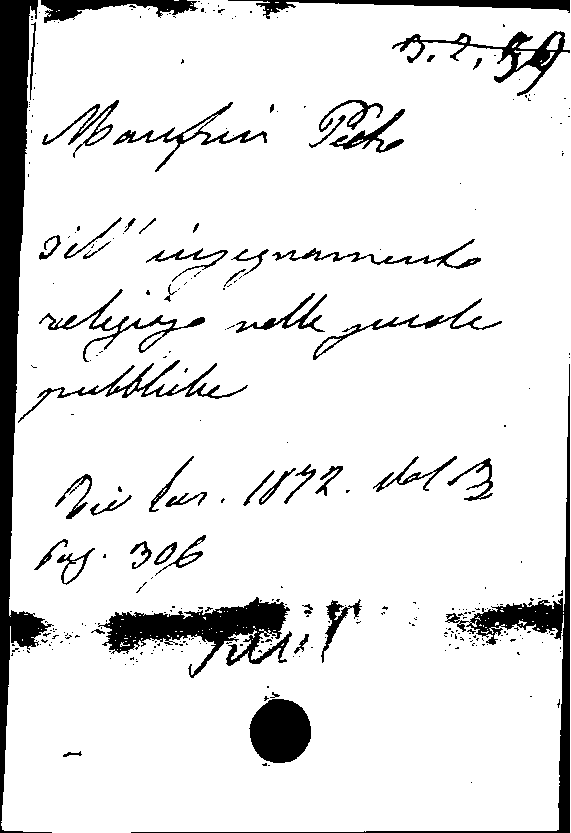 3. 2. 59
Manfrin Pietro
Dell' insegnamento
religioso nelle scuole
pubbliche
1872. Vol 3
Pag. 306